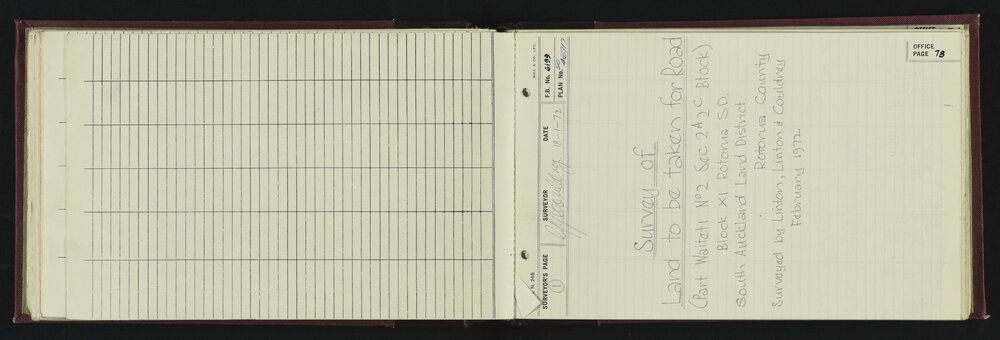 OFFICE
PAGE 7B
N. 24B
SURVEYOR'S PAGE SURVEYOR DATE F.B. No. 6199
(1) 18-1-72 PLAN No.
Survey of
Land to be taken for Road
(Part Waiteti No 2 Sec 2A2C Block)
Block XI Rotorua S.D.
South Auckland Land District.
Rotorua County
Surveyed by Linton, Linton & Couldrey
February 1972